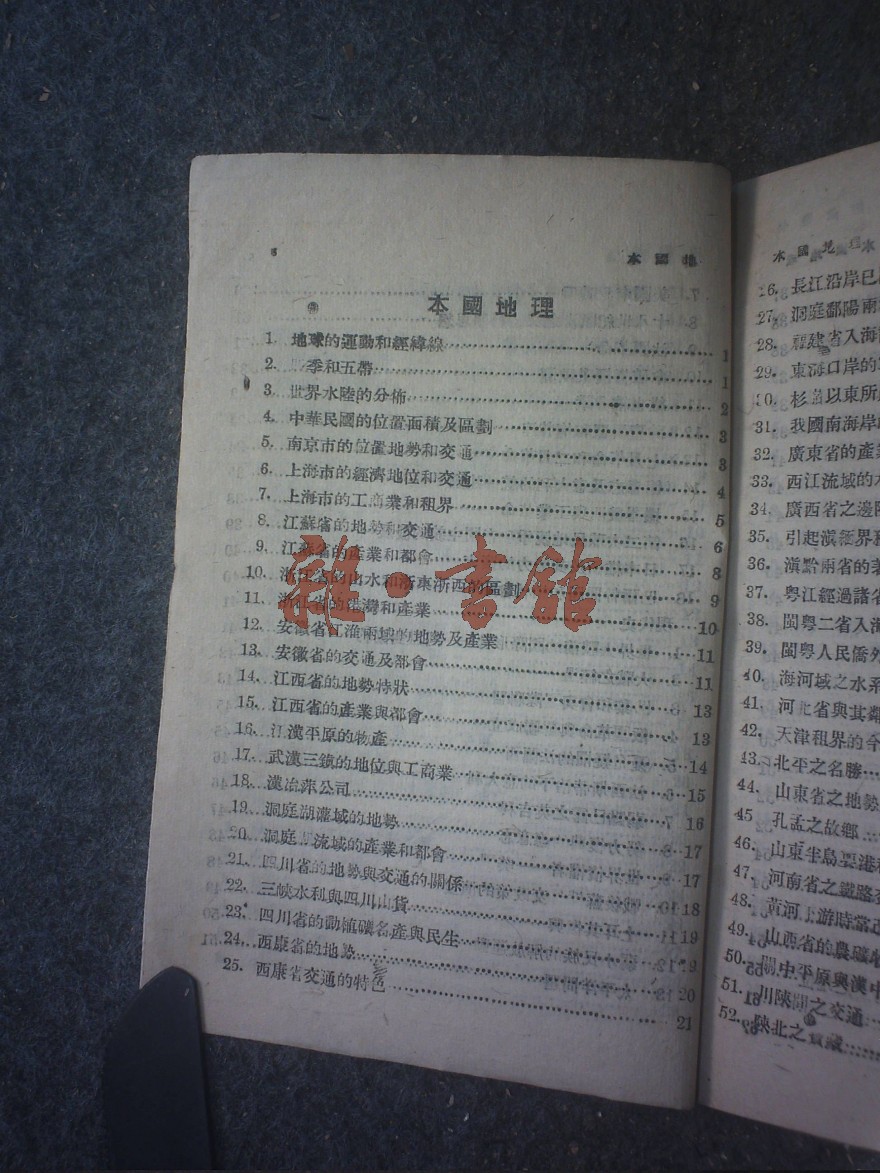 本國地
本國地理
1. 地球的運動和經緯線 1
2. 季和五帶 1
3. 世界水陸的分佈 2
4. 中華民國的位置面積及區劃 3
5. 南京市的位置地勢和交通 3
6. 上海市的經濟地位和交通 4
7. 上海市的工商業和租界 5
8. 江蘇省的地勢和交通 6
9. 江蘇省的產業和都會 8
10. 浙江省的山水和浙東浙西的區劃 9
11. 浙江省的港灣和產業 10
12. 安徽省江淮兩域的地勢及產業 11
13. 安徽省的交通及都會 11
14. 江西省的地勢特狀 13
15. 江西省的產業與都會 13
16. 江漢平原的物產 14
17. 武漢三鎮的地位與工商業 15
18. 漢冶萍公司 16
19. 洞庭湖灌域的地勢 17
20. 洞庭 流域的產業和都會 17
21. 四川省的地勢與交通的關係 18
22. 三峽水利與四川山貨 19
23. 四川省的動植礦名產與民生 19
24. 西康省的地勢 20
25. 西康省交通的特色 21
雜·書館
本國地理
26. 長江沿岸已
27. 洞庭鄱陽兩
28. 福建省入海
29. 東海口岸的
30. 杉 以東所
31. 我國南海岸
32. 廣東省的產業
33. 西江流域的
34. 廣西省之邊
35. 引起滇緬界務
36. 滇黔兩省的
37. 粵江經過諸省
38. 閩粵二省入海
39. 閩粵人民僑外
40. 海河域之水系
41. 河北省與其鄰
42. 天津租界的今
43. 北平之名勝
44. 山東省之地勢
45 孔孟之故鄉
46. 山東半島要港
47. 河南省之鐵路
48. 黃河上游時當
49. 山西省的農礦
50. 關中平原與漢中
51. 川陝間之交通
52. 陝北之寶藏